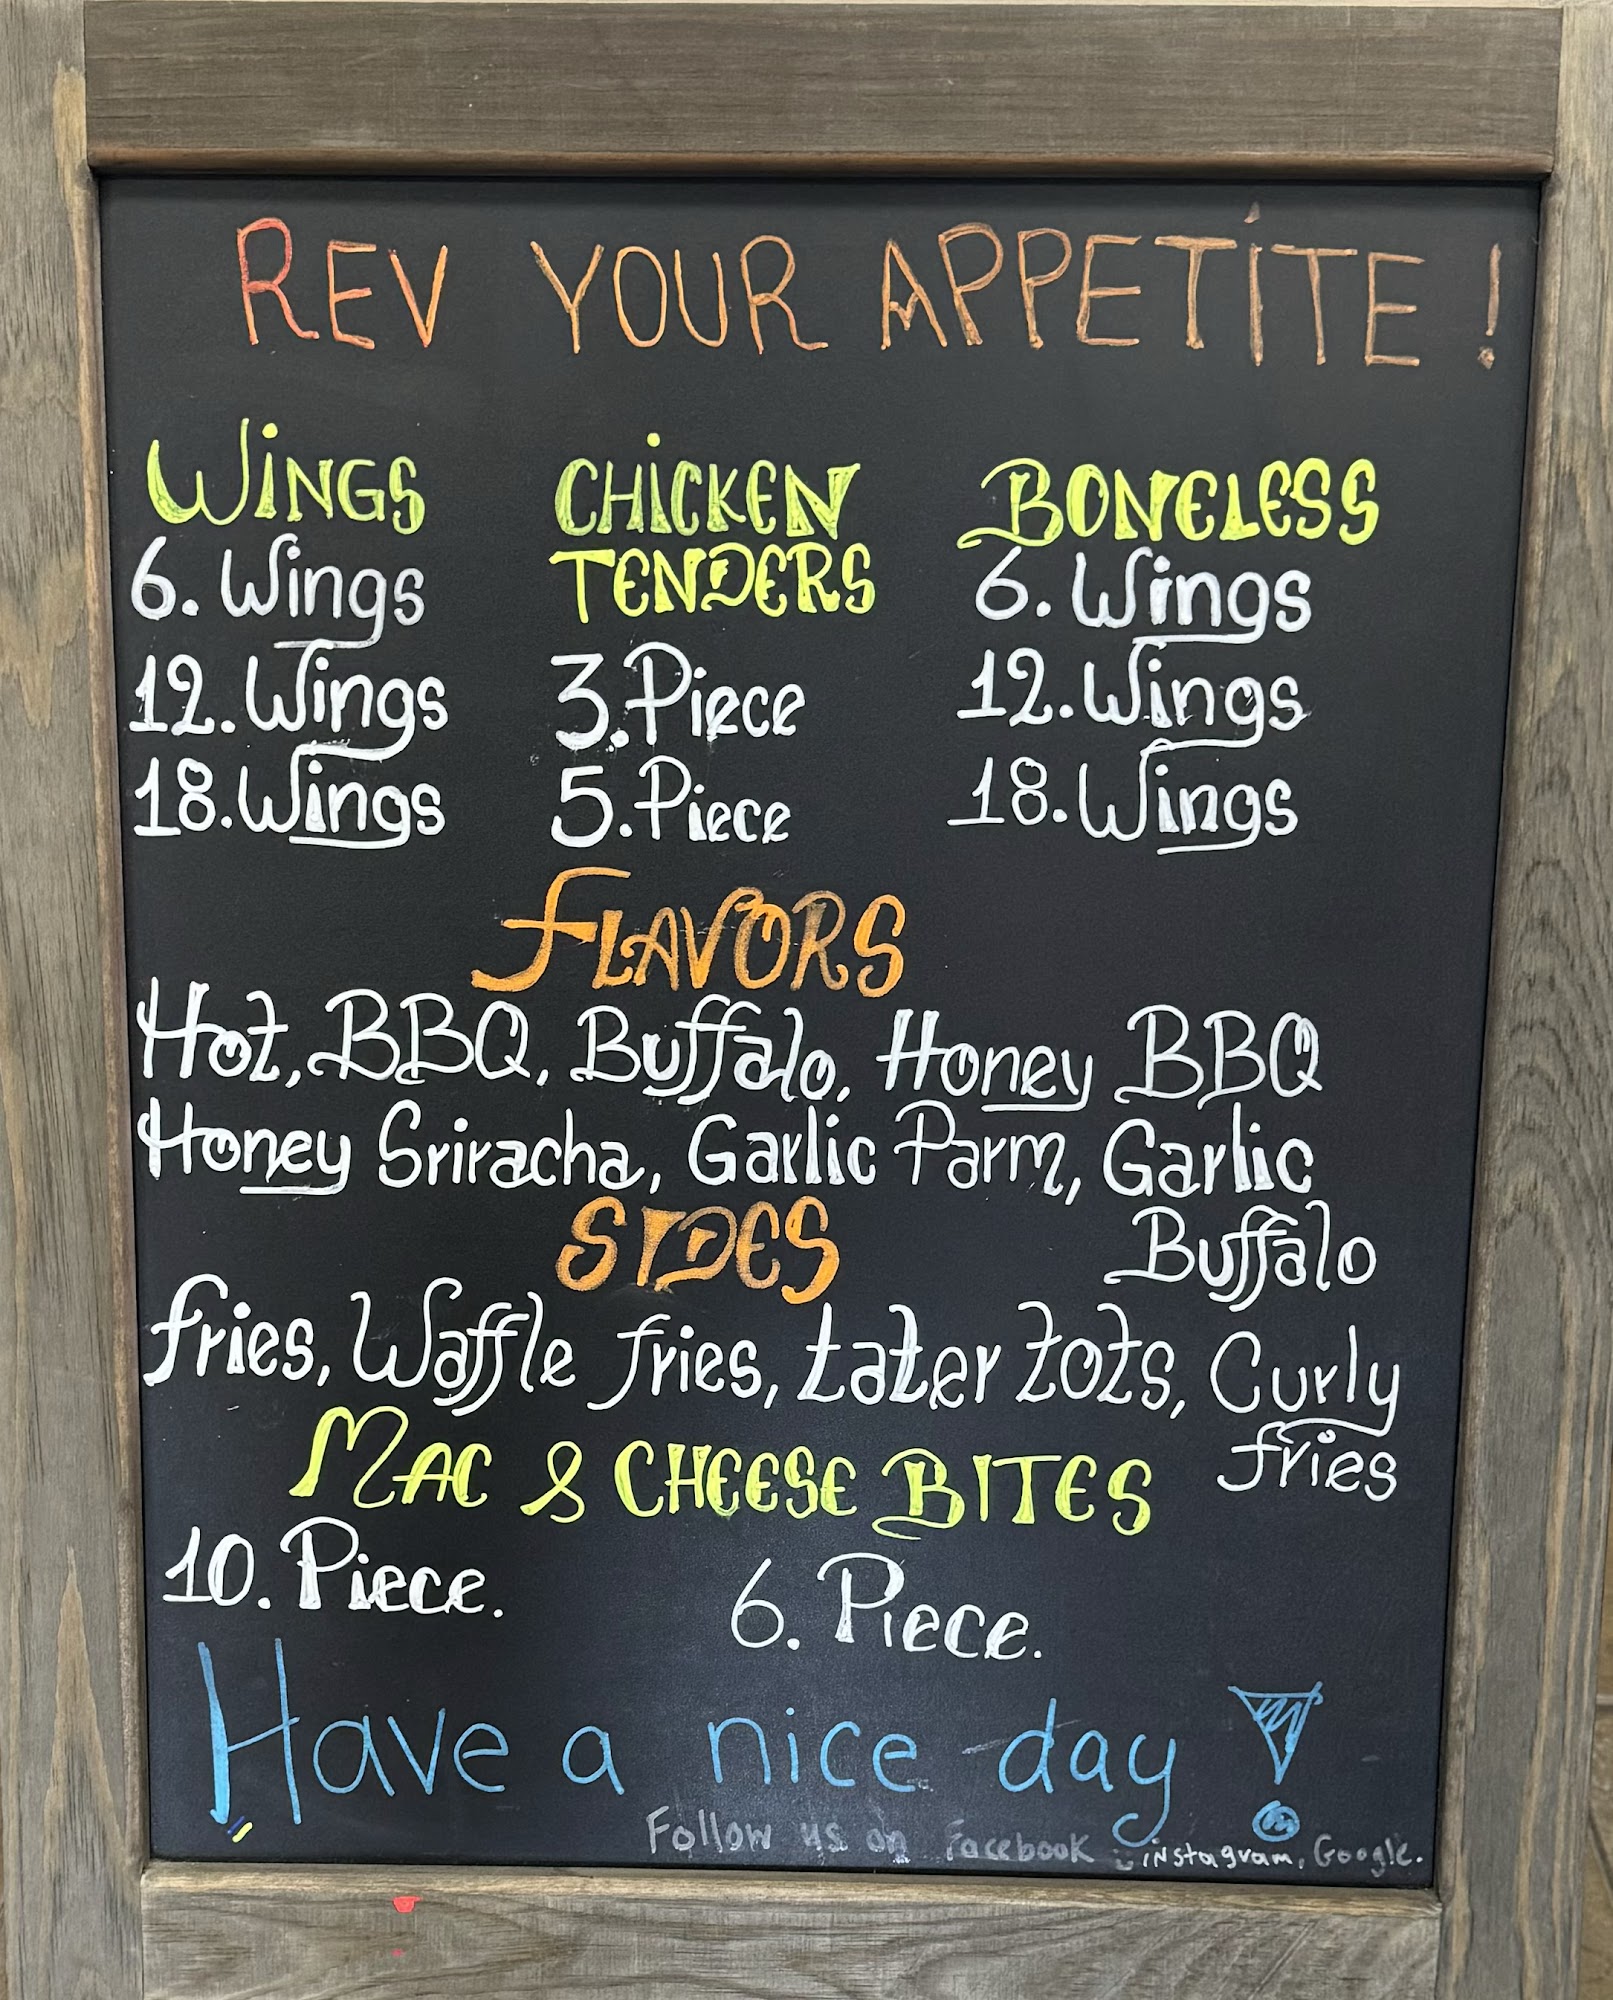 REV YOUR APPETITE !
WINGS
6. Wings
12. Wings
18. Wings
CHICKEN
TENDERS
3. Piece
5. Piece
BONELESS
6. Wings
12. Wings
18. Wings
FLAVORS
Hot, BBQ, Buffalo, Honey BBQ
Honey Sriracha, Garlic Parm, Garlic
Buffalo
SIDES
fries, Waffle fries, tater tots, Curly
fries
MAC & CHEESE BITES
10. Piece.
6. Piece.
Have a nice day !
Follow us on Facebook instagram, Google.